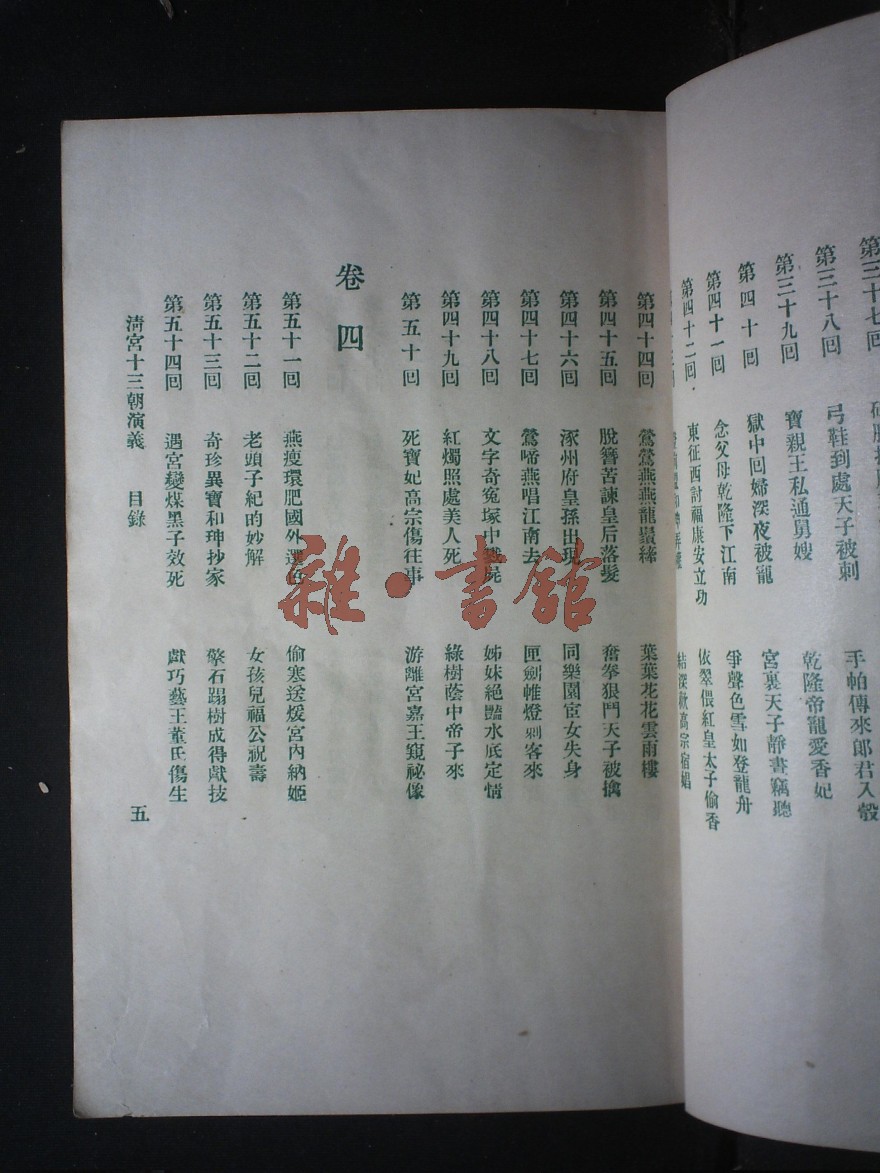 第三十七回
第三十八回 弓鞋到處天子被刺 手帕傳來郎君入彀
第三十九回 寶親王私通舅嫂 乾隆帝寵愛香妃
第四十回 獄中回婦深夜被寵 宮裏天子靜晝竊聽
第四十一回 念父母乾隆下江南 爭聲色雪如登龍舟
第四十二回 東征西討福康安立功 依翠偎紅皇太子偷香
結深歡高宗宿娼
第四十四回 鶯鶯燕燕龍鬚絲 葉葉花花雲雨樓
第四十五回 脫簪苦諫皇后落髮 奮拳狠鬥天子被擒
第四十六回 涿州府皇孫出現 同樂園宦女失身
第四十七回 鶯啼燕唱江南去 匣劍帷燈刺客來
第四十八回 文字奇冤塚中戮屍 姊妹絕豔水底定情
第四十九回 紅燭照處美人死 綠樹蔭中帝子來
第五十回 死寶妃高宗傷往事 游離宮嘉王窺祕像
卷四
第五十一回 燕瘦環肥國外選色 偷寒送煖宮內納姬
第五十二回 老頭子紀昀妙解 女孩兒福公祝壽
第五十三回 奇珍異寶和珅抄家 擎石蹋樹成得獻技
第五十四回 遇宮變煤黑子效死 獻巧藝王董氏傷生
清宮十三朝演義 目錄 五
雜·書館